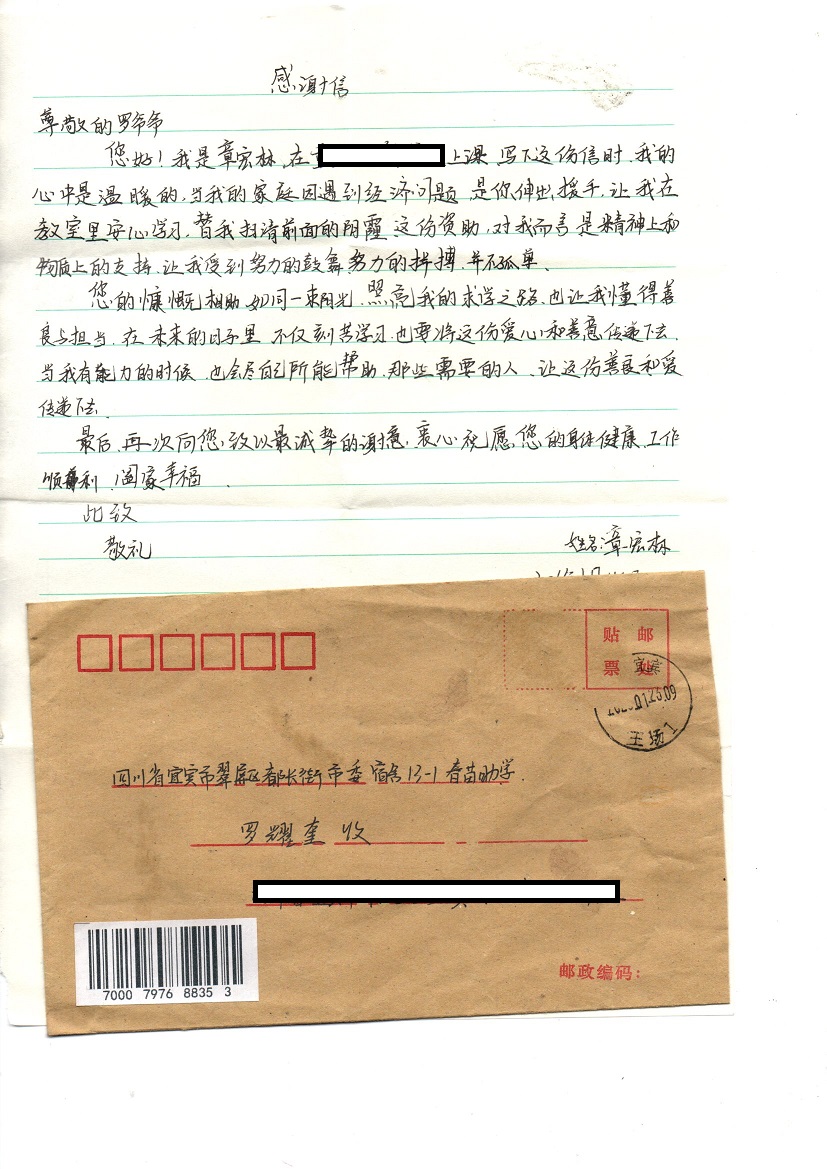 感谢信
尊敬的罗爷爷
您好！我是章宏林，在 上课 写下这份信时，我的
心中是温暖的，当我的家庭因遇到经济问题 是你伸出援手，让我在
教室里安心学习，替我扫清前面的阴霾 这份资助，对我而言是精神上和
物质上的支持，让我受到努力的鼓舞 努力的拼搏，并不孤单、
您的慷慨相助 如同一束阳光 照亮我的求学之路，也让我懂得善
良与担当，在未来的日子里 不仅刻苦学习，也要将这份爱心和善意传递下去，
当我有能力的时候 也会尽自己所能帮助，那些需要的人、让这份善良和爱
传递下去
最后，再次向您致以最诚挚的谢意，衷心祝愿，您的身体健康、工作
顺利，阖家幸福
此致
敬礼
姓名：章宏林
贴 邮
票 处
宜宾
01.25.09
王场1
四川省宜宾市翠屏区都长街市委宿舍13-1 春苗助学
罗耀奎 收
7000 7976 8835 3
邮政编码：